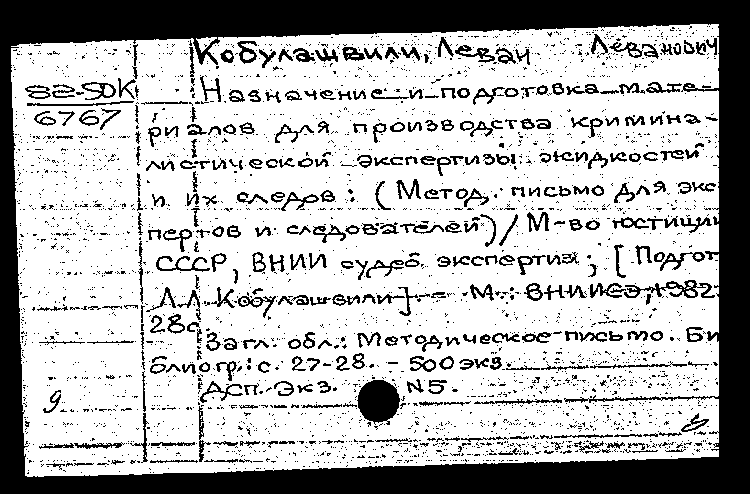 Кобулашвили, Леван Леванович
82-5DK
6767
Назначение и подготовка мате-
риалов для производства кримина-
листической экспертизы жидкостей
и их следов: (Метод. письмо для экс
пертов и следователей) / М-во юстиции
СССР, ВНИИ судеб. экспертиз; [Подгот
Л.Л. Кобулашвили]. - М.: ВНИИСЭ, 1982.
28с
Загл. обл.: Методическое письмо. Би
блиогр.: с. 27-28. - 500 экз.
Дсп. Экз. N5.
9